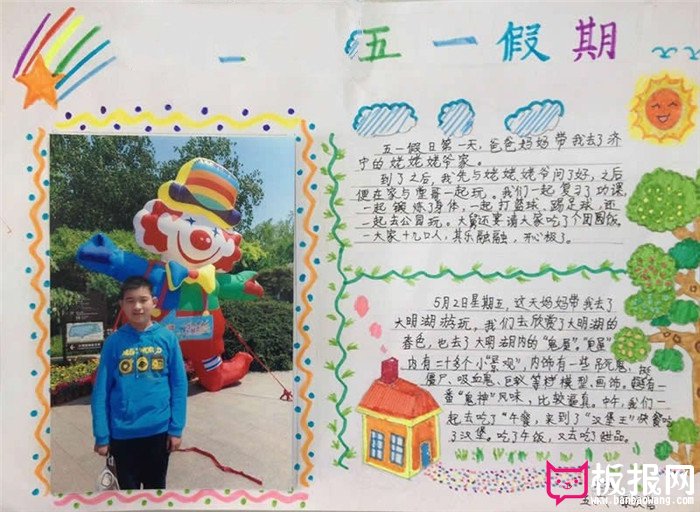 五一假期
五一假日第一天，爸爸妈妈带我去了济
宁的姥姥姥爷家。
到了之后，我先与姥姥姥爷问了好，之后
便在家与重哥一起玩。我们一起复习了功课，
一起锻炼了身体，一起打篮球、踢足球，还
一起去公园玩。大舅还宴请大家吃了个团圆饭。
一大家十几口人，其乐融融，开心极了。
5月2日星期五，这天妈妈带我去了
大明湖游玩，我们去欣赏了大明湖的
春色，也去了大明湖内的"鬼屋"，"鬼屋"
内有二十多个小"景观"，内饰有一些吊死鬼、
僵尸、吸血鬼、巨蚁等模型、画饰。
番"鬼神"风味，比较逼真。中午，我们一
起去吃了"午餐，来到了"汉堡王"快餐吃
了汉堡。吃了午饭，又去吃了甜品。
板报网
www.banbaowang.com